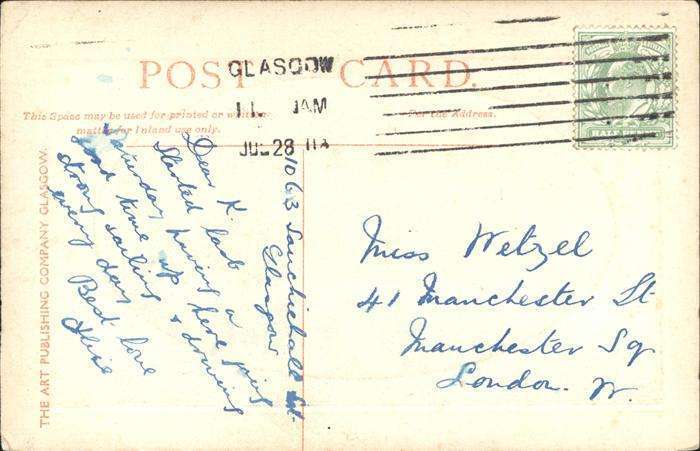 POST CARD.
GLASGOW
11 AM
JUL 28 11
HALF PENNY
This Space may be used for printed or written
matter for Inland use only.
For the Address.
THE ART PUBLISHING COMPANY GLASGOW.
1063 Sauchiehall St.
Glasgow
Dear K.
Started last
Saturday having a
good time up here going
strong sailing & driving
every day
Best love
Miss Wetzel
41 Manchester St
Manchester Sq.
London. W.